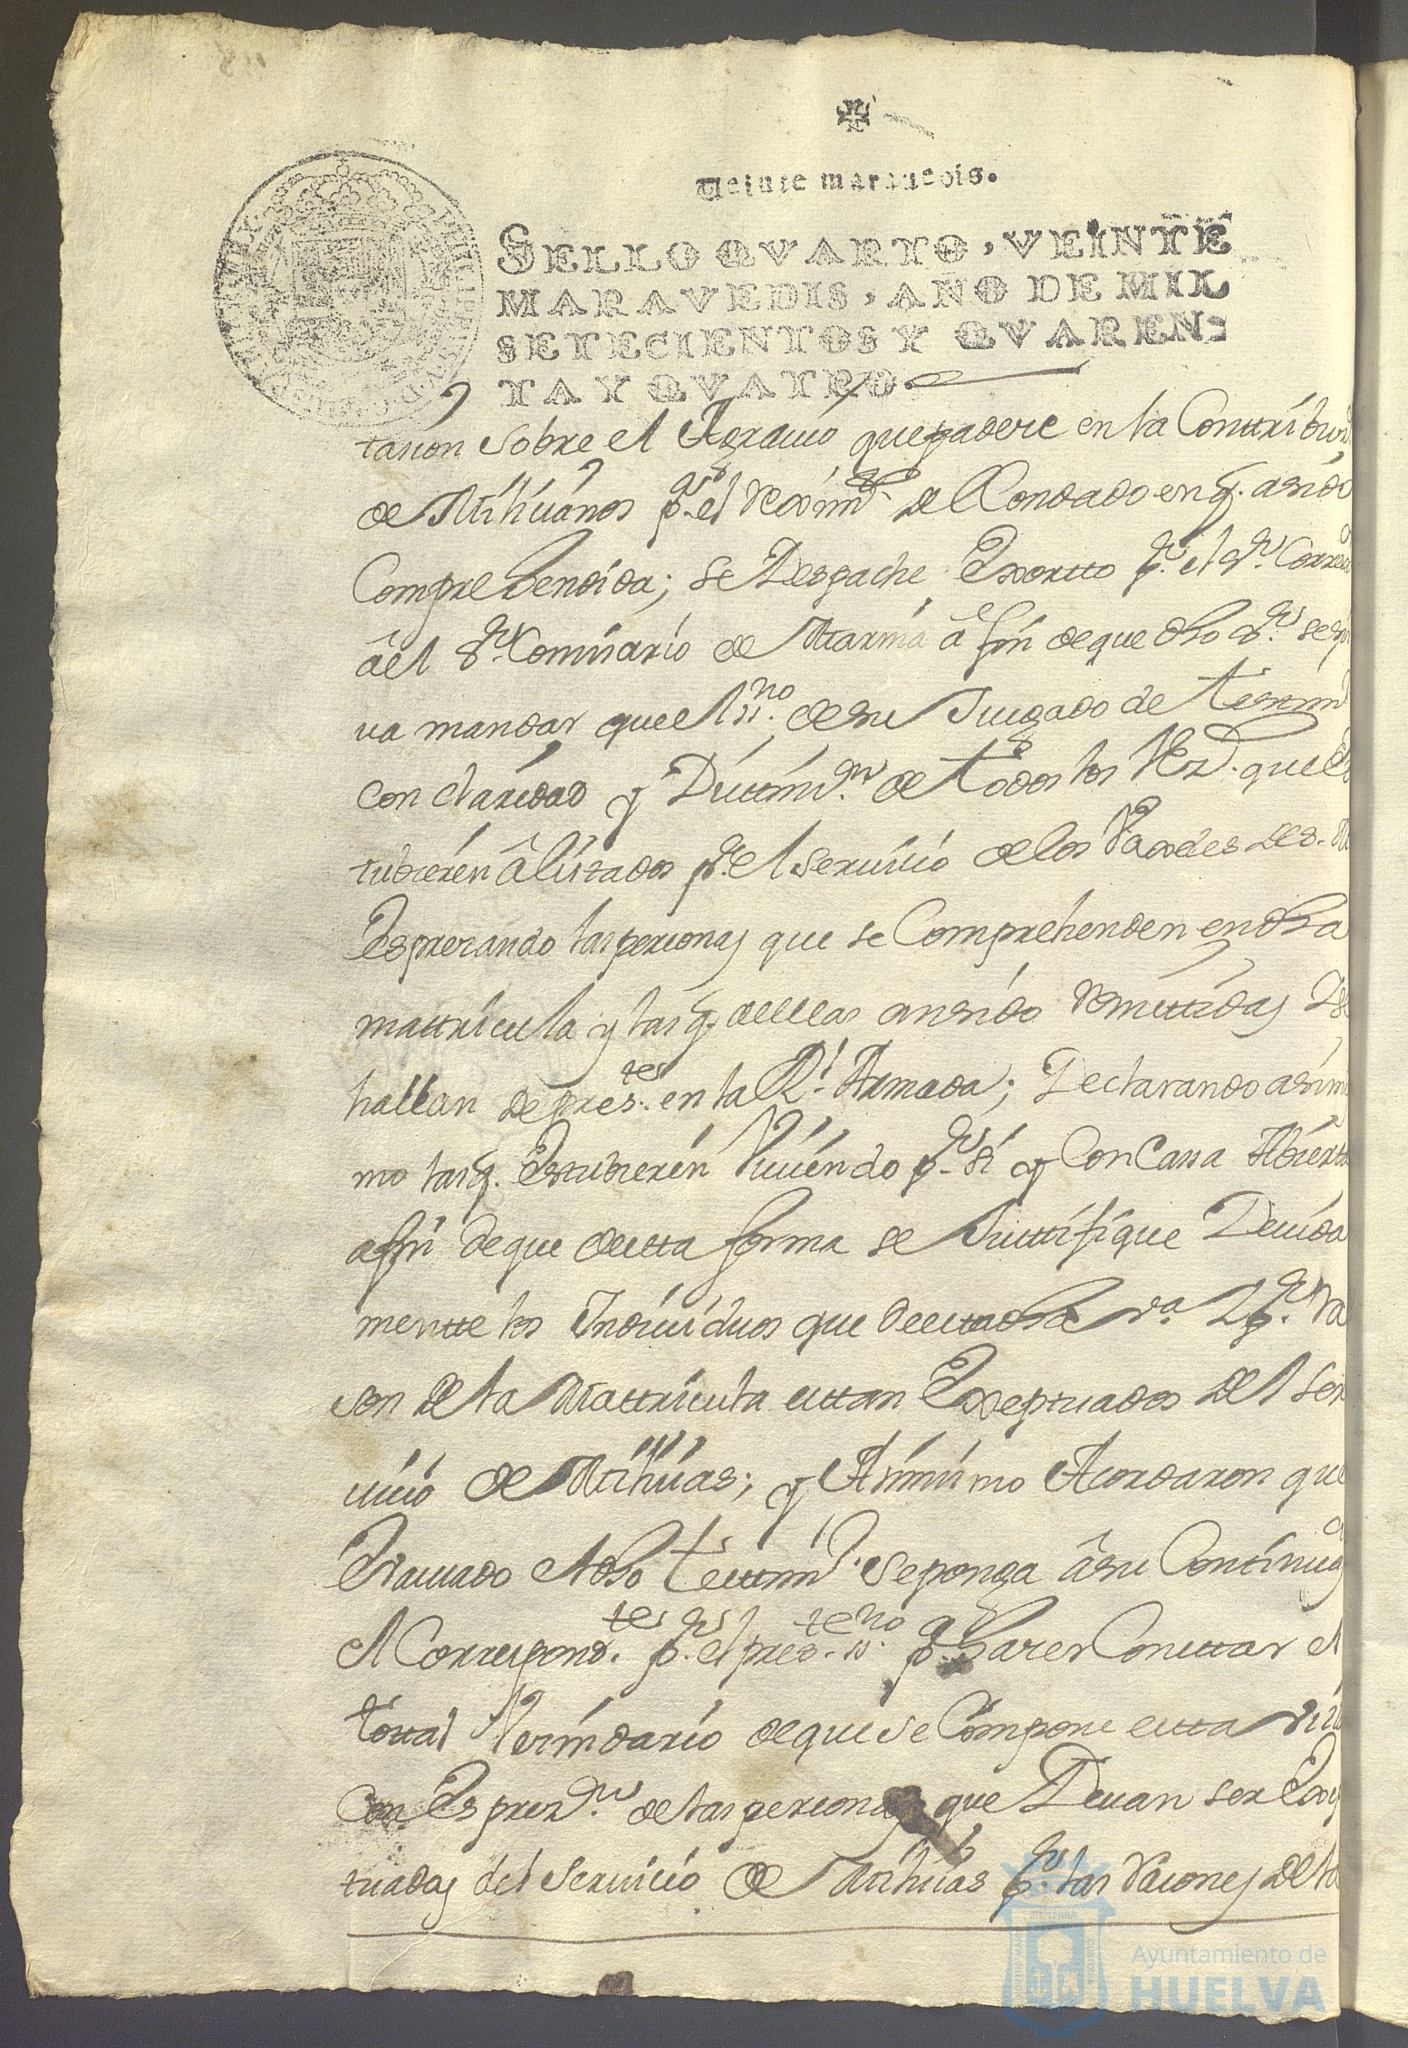 Veinte maravedis.
SELLO QVARTO, VEINTE
MARAVEDIS, AÑO DE MIL
SETECIENTOS Y QVAREN-
TA Y QVATRO.
tasion sobre el Agravio que padese en la Contribus
de Milisianos p.r el Reximto del Condado en q. a sido
Comprehendida; se Despache Exorto p.r el Sr. Correx
â el Sr. Comisario de Marina â fin de que dho Sr. se sir
va mandar que el ss.no de su Juzgado de testim
con claridad y Distinz.on de todos los Vez.os que es
tubieren âlistados p.a el seruicio de los Vaxeles de S. M
Espresando las personas que se Comprehenden en dha
mattricula y las q. de ellas an sido Remittidas y se
hallan de press.tes en la R.l Armada; Declarando asimi
mo las q. Estubieren Viuiendo p.r si y Con Casa Abierta
a fin de que de esta forma se Justtifique Deuida
mentte los Indiuiduos que de esta dha v.a y p.r Ra
son de la Mattricula esttan Exseptuados del ser
uicio de Milisias; y Asimismo Acordaron que
Evacuado el dho testtim.o se ponga â su Continuaz
el Correspond.te p.r el pres.te ss.no p.a haser Constar el
tottal Vesindario de que se Compone esta villa
Con Espres.on de las personas que Deuan ser Exsep
tuadas del Seruicio de Milisias p.r las Rasones de la
Ayuntamiento de
HUELVA